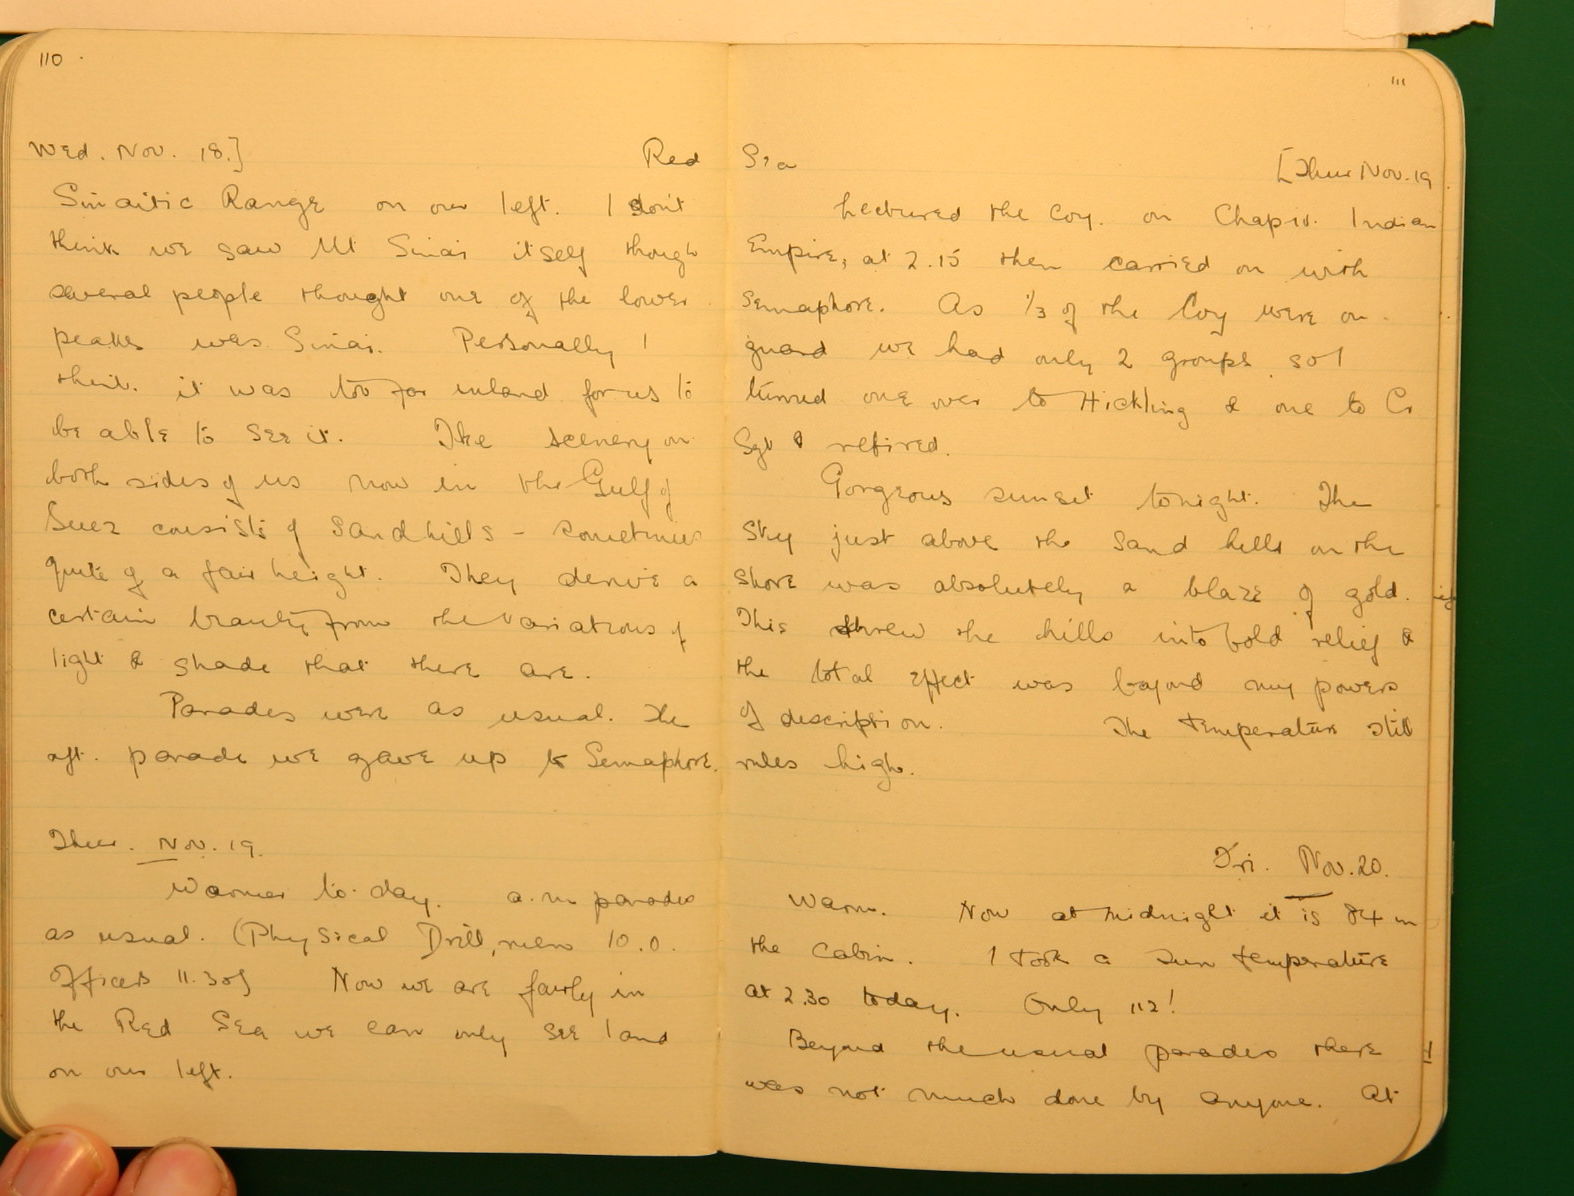 110
Wed. Nov. 18.] Red
Sinaitic Range on our left. I don't
think we saw Mt Sinai itself though
several people thought one of the lower
peaks was Sinai. Personally I
think it was too far inland for us to
be able to see it. The scenery on
both sides of us now in the Gulf of
Suez consists of sandhills - sometimes
quite of a fair height. They derive a
certain beauty from the variations of
light & shade that there are.
Parades were as usual. The
aft. parade we gave up to Semaphore.
Thur. Nov. 19.
Warmer to-day. a.m parades
as usual. (Physical Drill, men 10.0.
Officers 11.30) Now we are fairly in
the Red Sea we can only see land
on our left.
111
Sea [Thur Nov. 19
Lectured the Coy. on Chap iv. Indian
Empire, at 2.15 then carried on with
Semaphore. As 1/3 of the Coy were on
guard we had only 2 groups so I
turned one over to Hickling & one to Cr
Sgt & retired.
Gorgeous sunset tonight. The
sky just above the sand hills on the
shore was absolutely a blaze of gold.
This threw the hills into bold relief &
the total effect was beyond my powers
of description. The temperature still
rules high.
Fri. Nov. 20.
Warm. Now at midnight it is 84 in
the cabin. I took a sun temperature
at 2.30 today. Only 112!
Beyond the usual parades there
was not much done by anyone. At